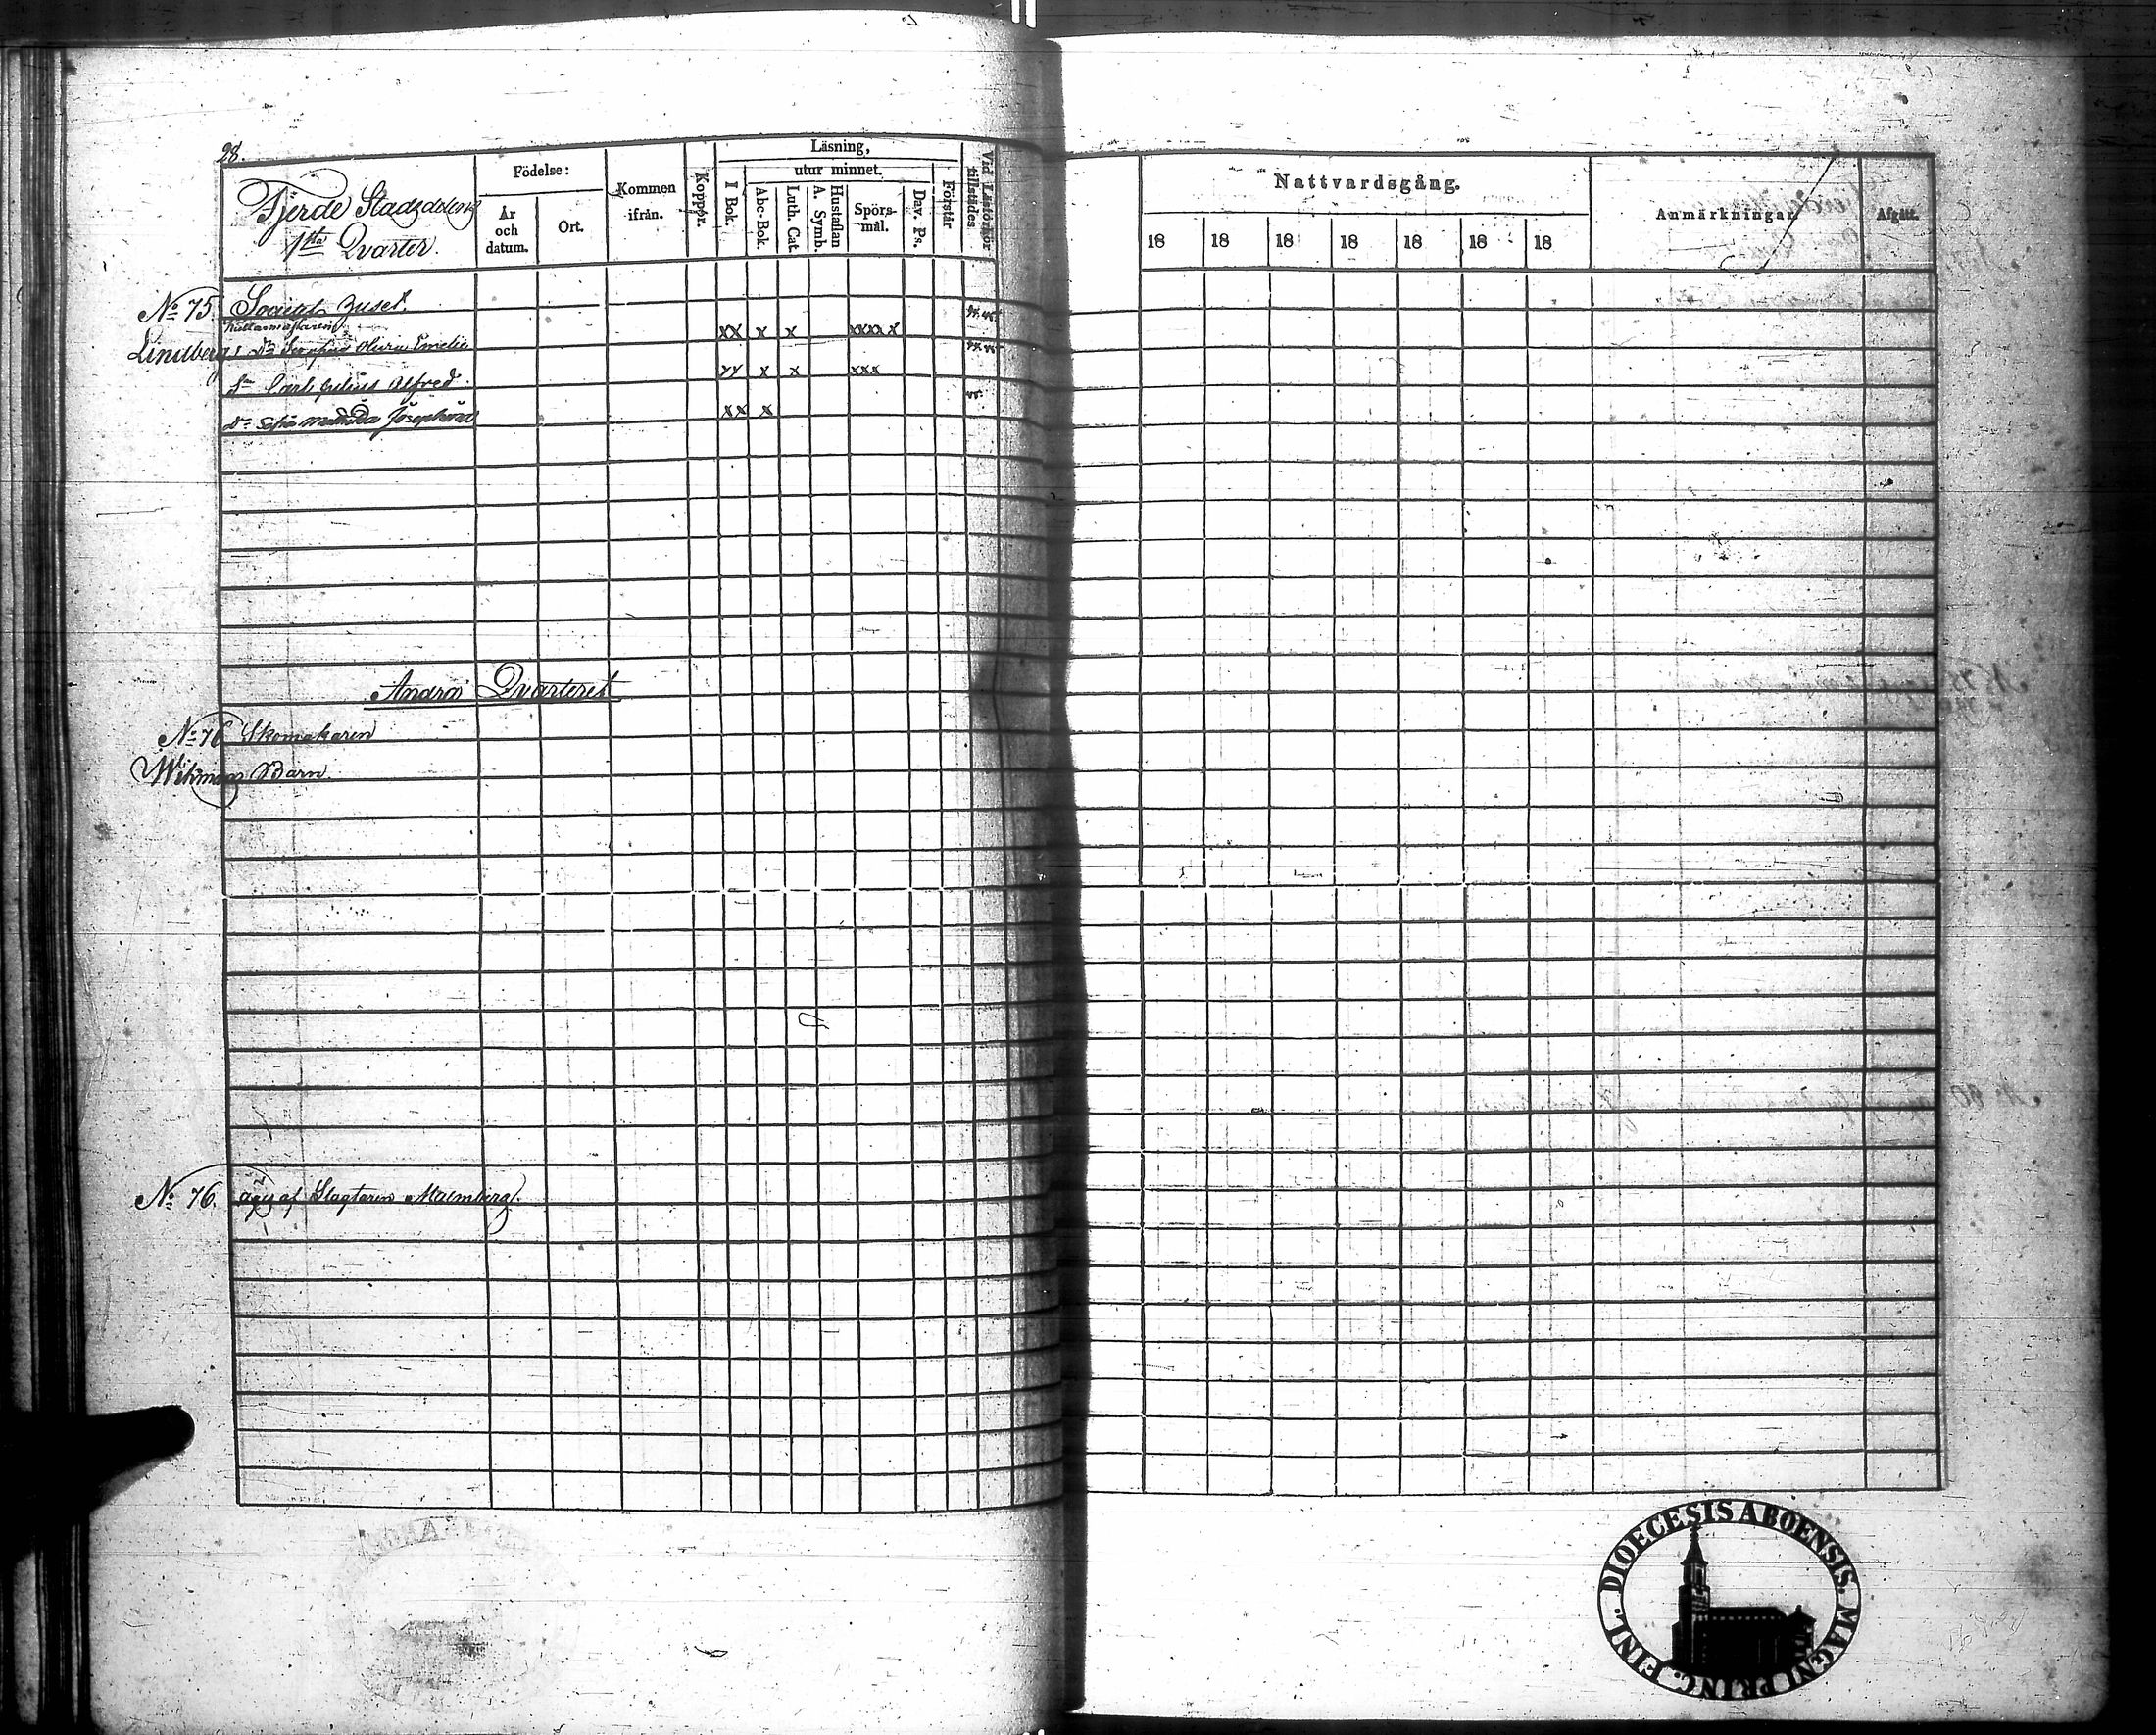 28.
Fjerde Stadsdelens
1sta Qvarter.
Födelse:
År och datum.
Ort.
Kommen ifrån.
Koppor.
Läsning,
utur minnet.
I Bok.
Abc-Bok.
Luth. Cat.
A. Symb. Hustaflan
Spörs-mål.
Dav. Ps.
Förstår
Vid Läsförhör tillstädes
Nattvardsgång.
18 18 18 18 18 18 18
Anmärkningar.
Afgått.
No 75. Societets Huset.
Källarmästaren
Lindbergs Dr Olivia Emelie xx x x xxxx x
Sn Carl Julius Alfred xx x x xxx
Dr Sofia Mathilda Josephina xx x
Andra Qvarteret
No 76 Skomakaren
Wikman Barn.
No 76. äges af Slagtaren Malmberg.
DIOECESIS ABOENSIS. MAGNI PRINC. FINL.